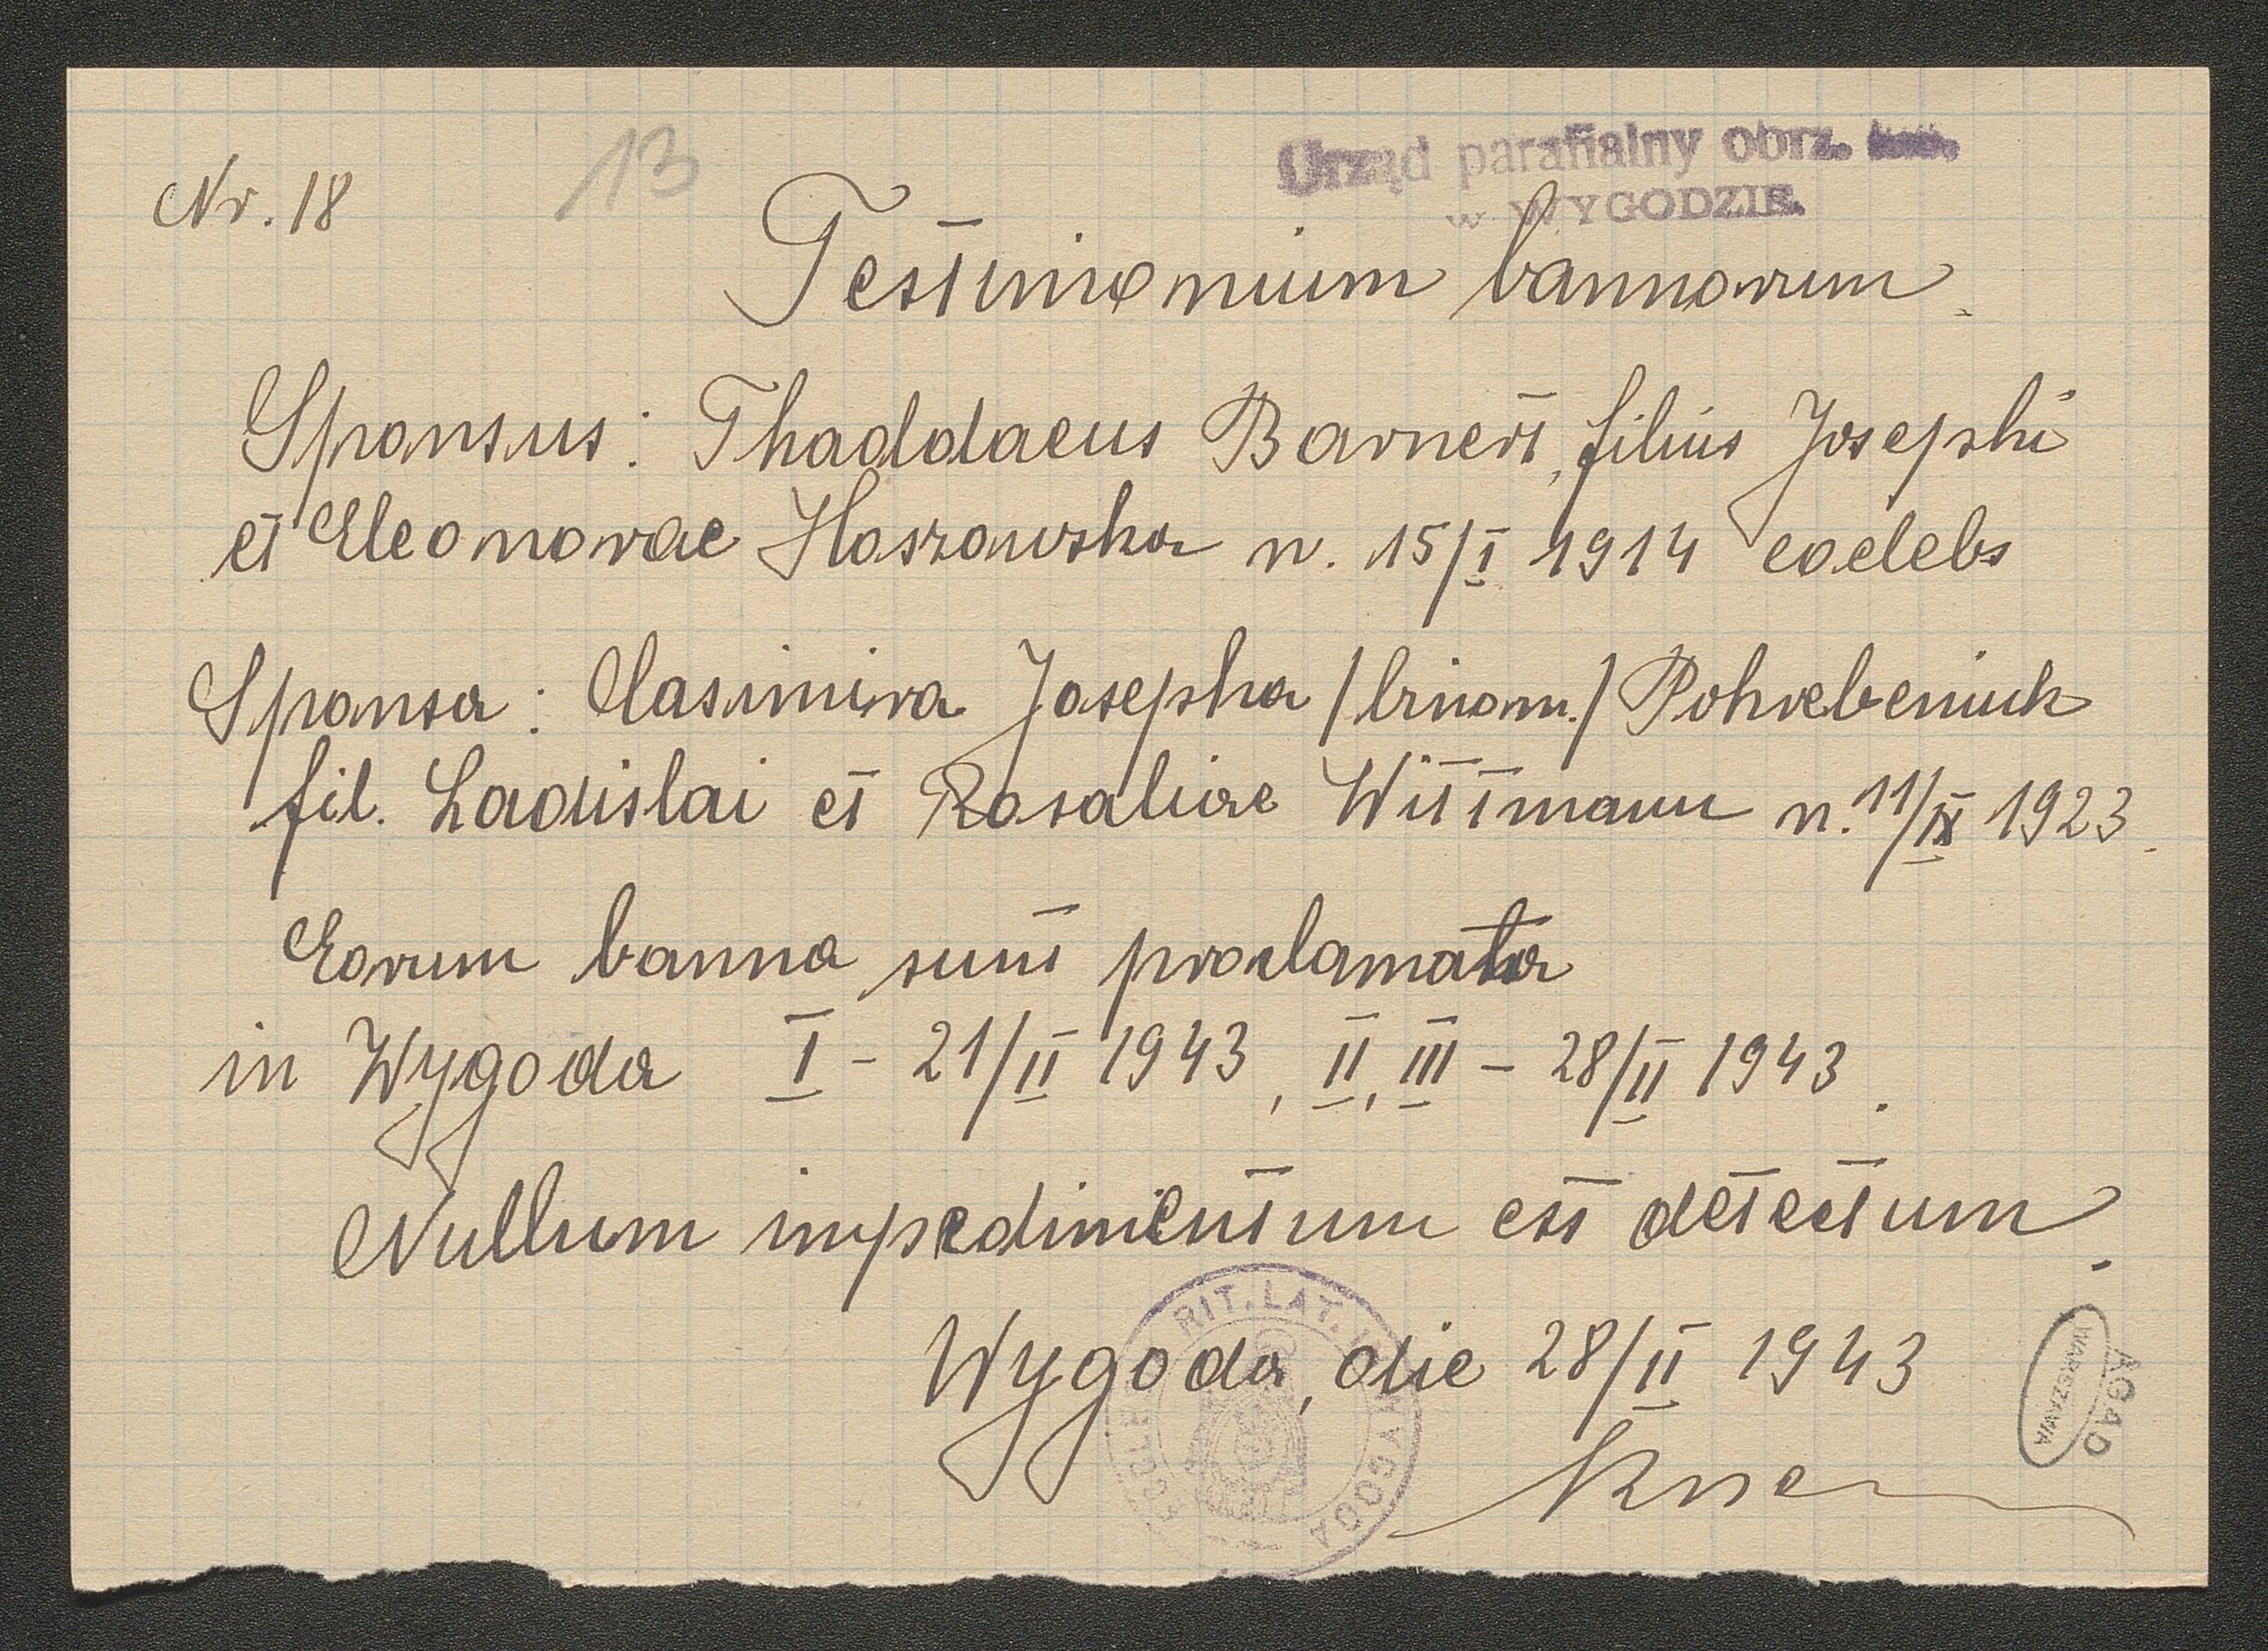 Nr. 18
13
Urząd parafialny obrz. łac.
w WYGODZIE.
Testimonium bannorum.
Sponsus: Thaddaeus Barnert, filius Josephi
et Eleonorae Hoszowska n. 15/I 1914 coelebs
Sponsa: Casimira Josepha /binom./ Pohrebeniuk
fil. Ladislai et Rosaliae Wittmann n. 11/IX 1923.
Eorum banna sunt proclamata
in Wygoda I - 21/II 1943, II, III - 28/II 1943.
Nullum impedimentum est detectum.
Wygoda, die 28/II 1943
RIT. LAT. IN WYGODA
AGAD
WARSZAWA